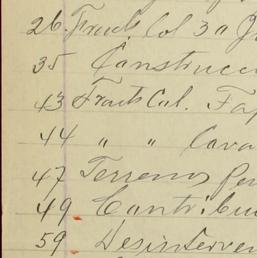 26. Fracc. Col 3a
35 Construcc
43 Fracc Col.
44 " "
47 Terrenos
49 Contribu
59 Desinterven